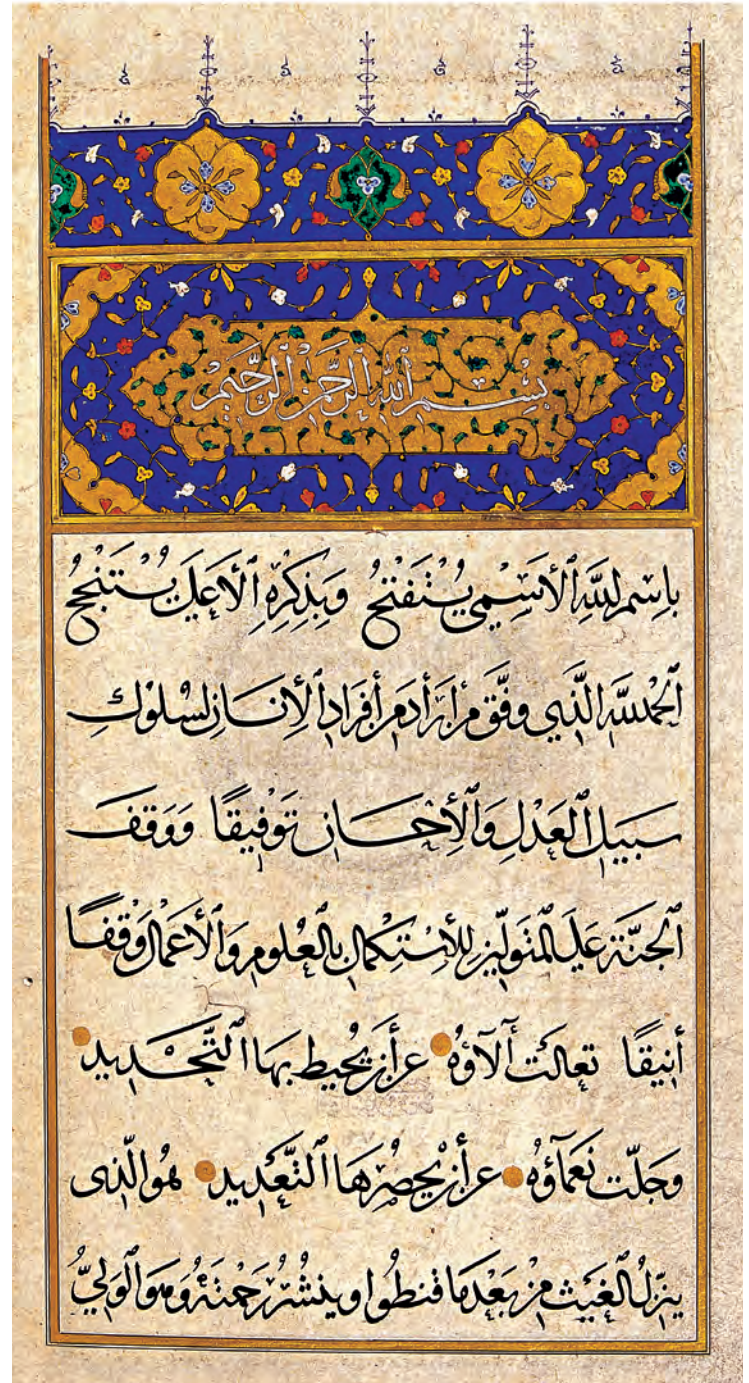 بِسْمِ ٱللّٰهِ ٱلرَّحْمٰنِ ٱلرَّحِيْمِ
بِاسْمِ اللّٰهِ ٱلْأَسْمٰى يُسْتَفْتَحُ وَبِذِكْرِهِ ٱلْأَعْلٰى يُسْتَنْجَحُ
ٱلْحَمْدُ لِلّٰهِ الَّذِي وَفَّقَ مَنْ أَرَادَ مِنْ أَفْرَادِ ٱلْإِنْسَانِ لِسُلُوْكِ
سَبِيْلِ ٱلْعَدْلِ وَٱلْإِحْسَانِ تَوْفِيقًا وَوَقَفَ
ٱلْجَنَّةَ عَلَى ٱلْمُتَوَلِّيْنَ لِلْاِسْتِكْمَالِ بِالْعُلُومِ وَٱلْأَعْمَالِ وَقْفًا
أَنِيقًا تَعَالَتْ آلَآؤُهُ عَنْ أَنْ يُحِيْطَ بِهَا ٱلتَّحْدِيدُ
وَجَلَّتْ نَعْمَآؤُهُ عَنْ أَنْ يَحْصُرَهَا ٱلتَّعْدِيدُ هُوَ الَّذِى
يُنَزِّلُ ٱلْغَيْثَ مِنْ بَعْدِ مَا قَنَطُوا وَيَنْشُرُ رَحْمَتَهُ وَهُوَ ٱلْوَلِيُّ